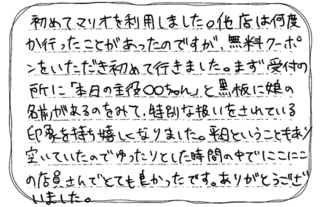 初めてマリオを利用しました。他店は何度
か行ったことがあったのですが、無料クーポ
ンをいただき初めて行きました。まず受付の
所に「本日の主役〇〇ちゃん」と黒板に娘の
名前があるのをみて、特別な扱いをされている
印象を持ち嬉しくなりました。平日ということもあり
空いていたのでゆったりとした時間の中でにこにこ
の店員さんでとても良かったです。ありがとうござ
いました。